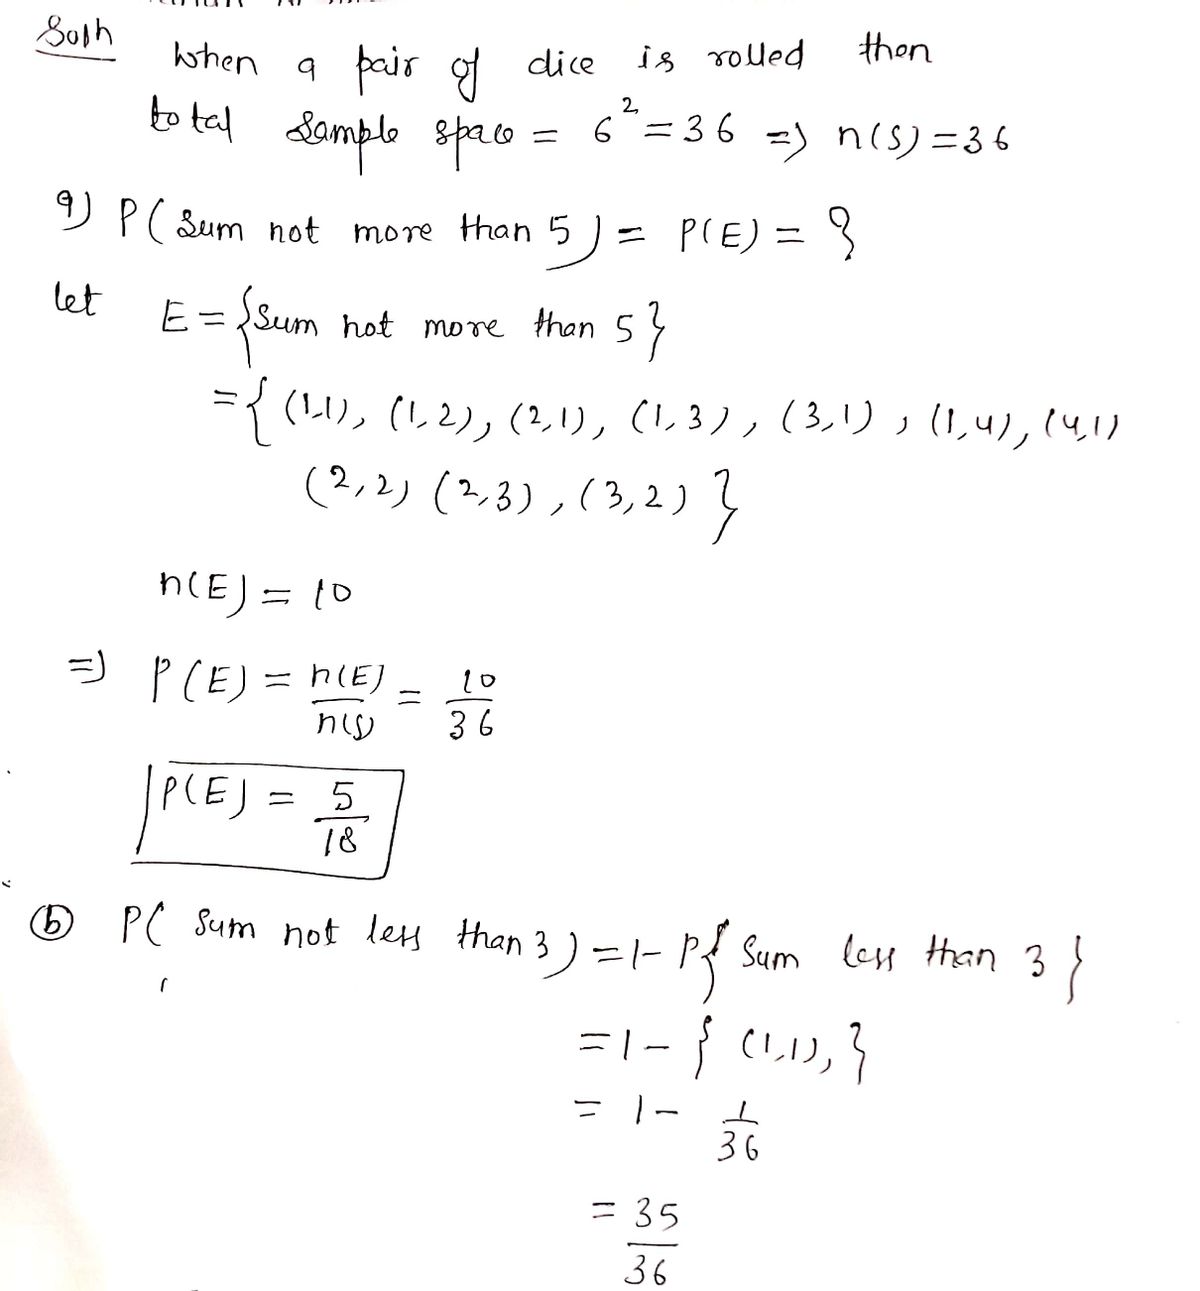 Soln
When a pair of dice is rolled then
total sample space = 6² = 36 => n(S) = 36
a) P( Sum not more than 5 ) = P(E) = ?
let E = { Sum not more than 5 }
= { (1,1), (1,2), (2,1), (1,3), (3,1), (1,4), (4,1)
(2,2) (2,3), (3,2) }
n(E) = 10
=> P(E) = n(E)/n(S) = 10/36
P(E) = 5/18
ⓑ P( Sum not less than 3 ) = 1 - P{ Sum less than 3 }
= 1 - { (1,1), }
= 1 - 1/36
= 35/36